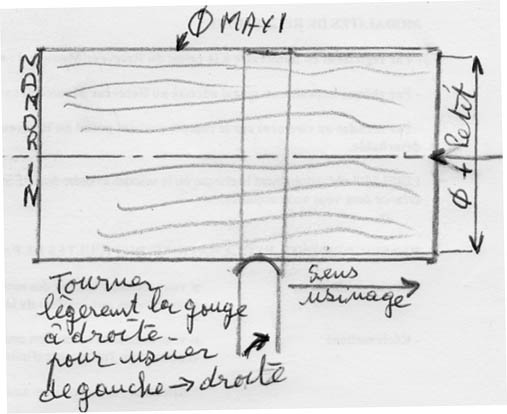 Ø MAXI
MANDRIN
Ø + Petit
Sens
usinage
Tourner
lègerent la gouge
à droite
pour usiner
de gauche → droite